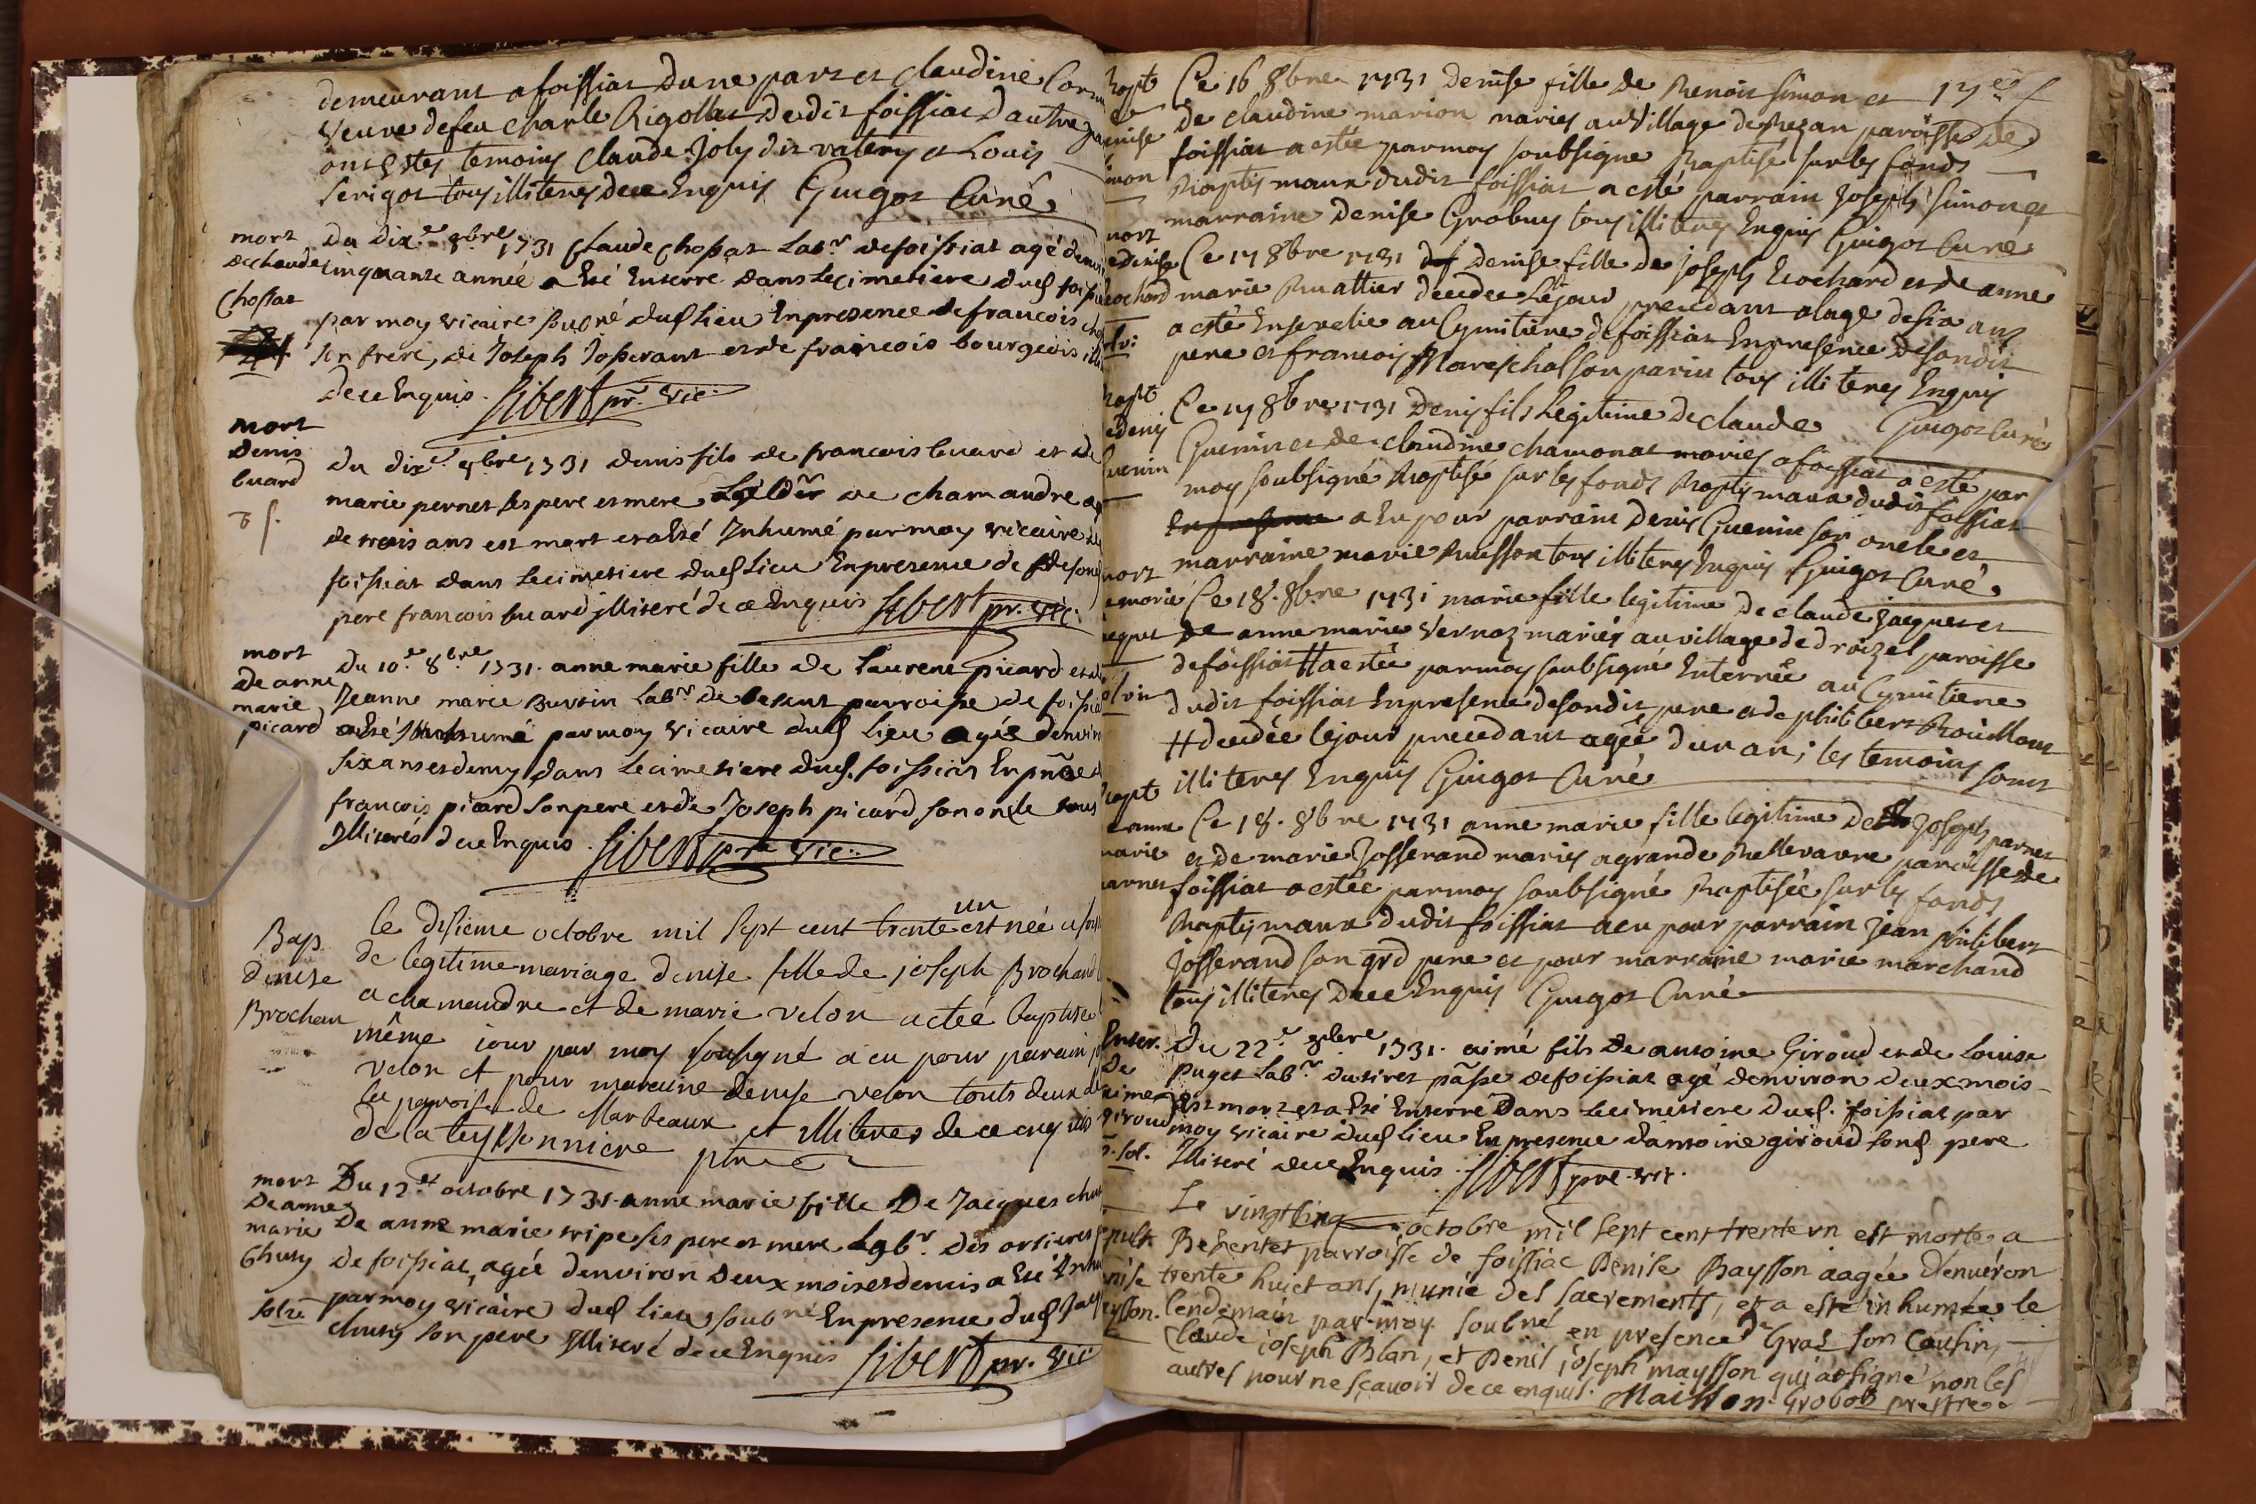 demeurant a foissiat dune part et Claudine
veuve defeu Charle Rigollet dedit foissiat dautre
ont estes temoins Claude Joly dit valery et Louis
serigot tous illiteres de ce Enquis Guigot Curé
mort
de claude
Chossat
Du dix.e 8bre 1731 Claude Chossat Lab.r defoissiat agé
cinquante année a Eté Enterré dans Lecimetiere dud
par moy vicaire soubné dud lieu Enpresence defrancois
son frere, de Joseph Josserant et de francois bourgeois
dece Enquis. Sibert pr. vic.
mort
denis
buard
du dix.e 8bre 1731 denis fils de francois buard et de
marie pernet ses pere et mere de chamandre
de trois ans est mort et a Eté Inhumé par moy vicaire
foissiat dans Lecimetiere dud Lieu Enpresence de
pere francois buard illiteré de ce Enquis Sibert pr. vic.
mort
de anne
marie
picard
Du 10.e 8bre 1731. anne marie fille de Laurent picard et
Jeanne marie Burtin Lab.r de parroisse de
a Eté Inhumé par moy vicaire dud Lieu agée
six ans et demy dans Lecimetiere dud. foissiat
francois picard son pere et de Joseph picard son oncle tous
Illiterés de ce Enquis. Sibert pr vic.
Bap
denise
Brochan
le disieme octobre mil sept cent trente un est née
de legitime mariage denise fille de joseph Brochand
a chamandre et de marie velon a eté baptisee
même iour par moy sousigné a eu pour parain
velon et pour maraine denise velon touts deux
la paroisse de Marboaux et illiteres de ce enquis
de la teyssonniere ptre
mort
de anne
marie
Chusy
Du 12.e octobre 1731 anne marie fille De Jacques
De anne marie tripe ses pere et mere Lab.r des orsieres
de foissiat, agée denviron deux mois et demis a Eté
par moy vicaire dud lieu soubné Enpresence dud
chusy son pere Illiteré de ce Enquis
Sibert pr. vic
Ce 16 8bre 1731 denise fille de Benoit Simon et
de claudine marion maries au village paroisse de
foissiat a estée par moy soubsigne Baptisé sur les fonds
Baptismaux dudit foissiat a esté parrain Joseph Simon et
marraine denise Grobuy tous illiteres Enquis Guigot Curé
Ce 17 8bre 1731 denise fille de joseph Brochard et de anne
marie Ruattier decedee lejour precedant alage desix ans
a esté Ensevelie au Cymitiere defoissiat Enpresence desondit
pere et francois Mareschal son parin tous illiteres Enquis
Guigot Curé
Ce 17 8bre 1731 Denis fils legitime de claude
Guenin et de claudine chamonat maries a foissiat a esté par
moy soubsigné Baptisé sur les fonds Baptismaux dudit foissiat
a Eu pour parrain denis Guenin son oncle et
marraine marie Buisson tous illiteres Enquis Guigot Curé
Ce 18. 8bre 1731 marie fille legitime de claude Jacquet et
de anne marie vernoz mariés au village de droizel paroisse
defoissiat # a estée par moy soubsigné Enterrée au Cymitiere
dudit foissiat Enpresence desondit pere et de philibert Brouillont
# decedée lejour precedant agée dun an; les temoins sont
illiteres Enquis Guigot Curé
Ce 18. 8bre 1731 anne marie fille legitime de Joseph parnet
et de marie Josserand maries agrande paroisse de
foissiat a estée par moy soubsigné Baptisée sur les fonds
Baptismaux dudit foissiat a eu pour parrain jean philibert
Josserand son grd pere et pour marraine marie marchand
tous illiteres de ce Enquis Guigot Curé
Enter.
de
aimé
giroud
Du 22.e 8bre 1731. aimé fils de antoine Giroud et de Louise
puget Lab.r dutiret pãsse defoissiat agé denviron deux mois
est mort et a Eté Enterré dans Lecimetiere dud. foissiat par
moy vicaire dud Lieu Enpresence dantoine giroud sond pere
Illiteré dece Enquis. Sibert pre. vic.
Le vingt cinq octobre mil sept cent trente un est morte a
Bethentet parroisse de foissiac Denise Baysson aagée denuéron
trente huict ans, munie des sacrements, et a esté inhumée le
lendemain par moy soubné en presence de Gras son Cousin,
Claude joseph Blan, et Denis joseph maysson qui a signé non les
autres pour ne sçavoir de ce enquis. Maisson Grobot prestre